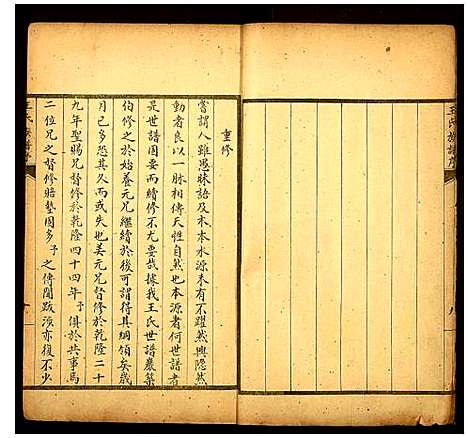 王氏族譜序
八
重修
嘗謂人雖愚昧語及木本水源未有不躍然興隱然
動者良以一脉相傳天性自然也本源者何世譜者
是世譜固要而續修不尤要哉據我王氏世譜嚴築
伯修之於始養元兄繼續於後可謂得其綱領矣歲
月已多恐其久而或失也美元兄督修於乾隆二十
九年聖賜兄督修於乾隆四十四年予俱於共事焉
二位兄之督修賠墊固多予之傳聞跋涉亦復不少
王氏族譜序